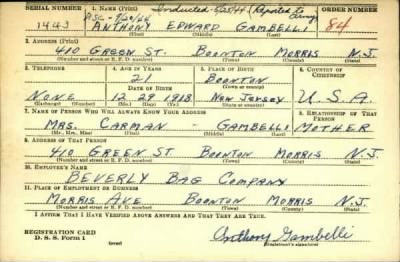 SERIAL NUMBER 1. NAME (Print) Inducted (Reported to Army) ORDER NUMBER
1443 ANTHONY EDWARD GAMBELLI 84
(First) (Middle) (Last)
2. ADDRESS (Print)
410 GREEN ST. BOONTON MORRIS N.J.
(Number and street or R. F. D. number) (Town) (County) (State)
3. TELEPHONE 4. AGE IN YEARS 5. PLACE OF BIRTH 6. COUNTRY OF CITIZENSHIP
21 BOONTON
DATE OF BIRTH (Town or county)
NONE 12 29 1918 NEW JERSEY U.S.A.
(Exchange) (Number) (Mo.) (Day) (Yr.) (State or country)
7. NAME OF PERSON WHO WILL ALWAYS KNOW YOUR ADDRESS 8. RELATIONSHIP OF THAT PERSON
MRS. CARMAN - GAMBELLI MOTHER
(Mr., Mrs., Miss) (First) (Middle) (Last)
9. ADDRESS OF THAT PERSON
410 GREEN ST BOONTON MORRIS N.J.
(Number and street or R. F. D. number) (Town) (County) (State)
10. EMPLOYER'S NAME
BEVERLY BAG COMPANY
11. PLACE OF EMPLOYMENT OR BUSINESS
MORRIS AVE BOONTON MORRIS N.J.
(Number and street or R. F. D. number) (Town) (County) (State)
I AFFIRM THAT I HAVE VERIFIED ABOVE ANSWERS AND THAT THEY ARE TRUE.
REGISTRATION CARD
D. S. S. Form 1 (over) Anthony Gambelli
(Registrant's signature)